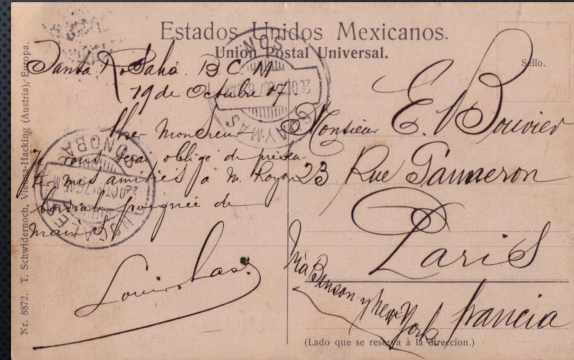 Estados Unidos Mexicanos.
Unión Postal Universal.
Sello.
Nr. 8872. T. Schwidernoch, Vienna-Hacking (Austria), Europa.
Santa Rosalia. B.C. M
19 de Octubre 07
Cher Monsieur
Je vous serai obligé de présen-
mes amitiés à M.
cordiale poignée de
main
Louis
Monsieur E. Bouvier
23 Rue
Paris
francia
Via y New York
(Lado que se reserva à la direccion.)
GUAYMAS
SON